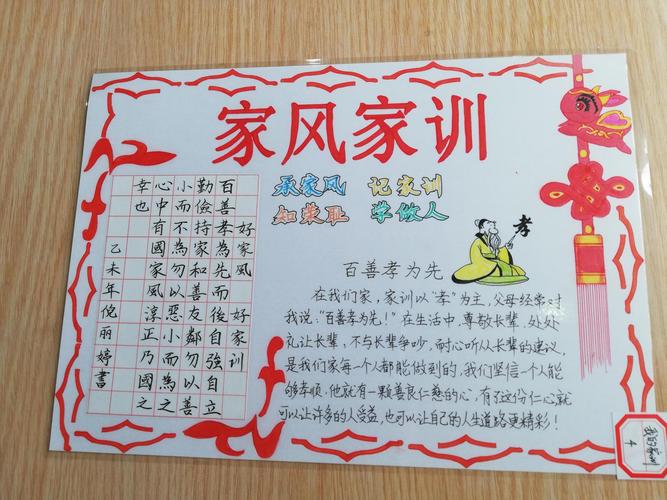 家风家训
承家风 记家训
知荣耻 学做人
好家風好家訓
百善孝為先而後自強自立
勤儉持家和善友鄰勿以善
小而不為勿以惡小而為之
心中有國家風淳正乃國之
幸也
乙未年倪丽婷書
孝
百善孝为先
在我们家,家训以“孝”为主,父母经常对
我说:“百善孝为先!”在生活中,尊敬长辈,处处
礼让长辈,不与长辈争吵,耐心听从长辈的建议,
是我们家每一个人都能做到的,我们坚信一个人能
够孝顺,他就有一颗善良仁慈的心,有了这份仁心就
可以让许多的人受益,也可以让自己的人生道路更精彩!
我的家训
4